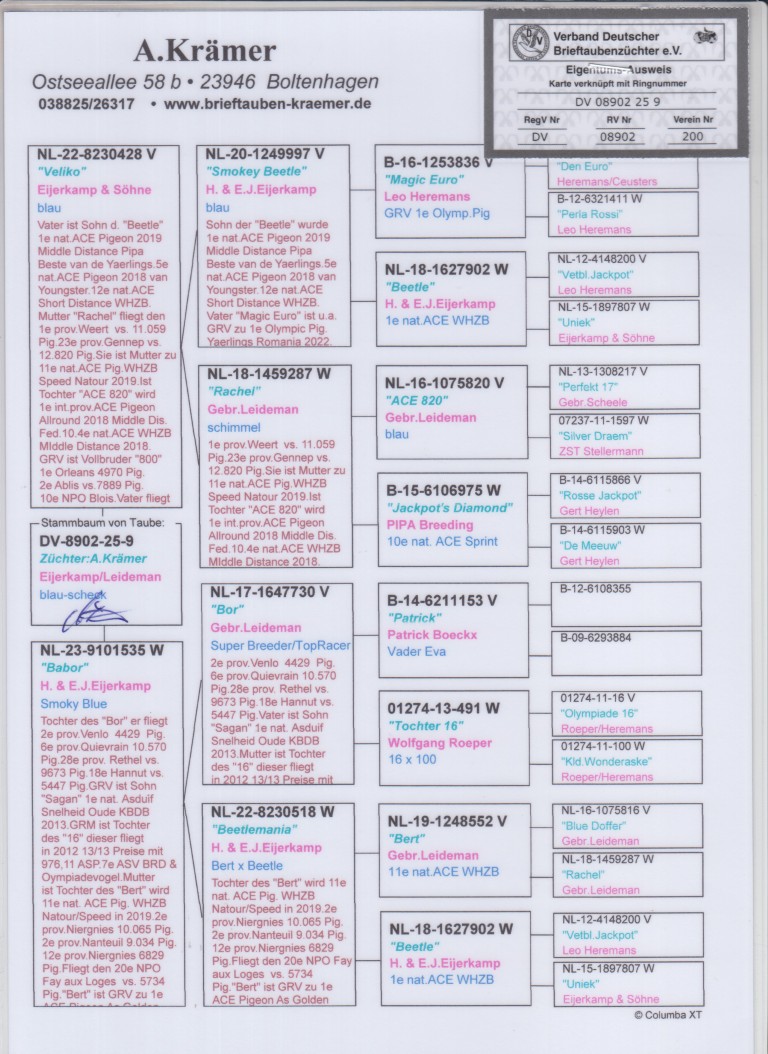 A.Krämer
Ostseeallee 58 b • 23946 Boltenhagen
038825/26317 • www.brieftauben-kraemer.de
Verband Deutscher
Brieftaubenzüchter e.V.
Eigentums-Ausweis
Karte verknüpft mit Ringnummer
DV 08902 25 9
RegV Nr RV Nr Verein Nr
DV 08902 200
NL-22-8230428 V
"Veliko"
Eijerkamp & Söhne
blau
Vater ist Sohn d. "Beetle"
1e nat.ACE Pigeon 2019
Middle Distance Pipa
Beste van de Yaerlings.5e
nat.ACE Pigeon 2018 van
Youngster.12e nat.ACE
Short Distance WHZB.
Mutter "Rachel" fliegt den
1e prov.Weert vs. 11.059
Pig.23e prov.Gennep vs.
12.820 Pig.Sie ist Mutter zu
11e nat.ACE Pig.WHZB
Speed Natour 2019.Ist
Tochter "ACE 820" wird
1e int.prov.ACE Pigeon
Allround 2018 Middle Dis.
Fed.10.4e nat.ACE WHZB
MIddle Distance 2018.
GRV ist Vollbruder "800"
1e Orleans 4970 Pig.
2e Ablis vs.7889 Pig.
10e NPO Blois.Vater fliegt
Stammbaum von Taube:
DV-8902-25-9
Züchter:A.Krämer
Eijerkamp/Leideman
blau-scheck
NL-23-9101535 W
"Babor"
H. & E.J.Eijerkamp
Smoky Blue
Tochter des "Bor" er fliegt
2e prov.Venlo 4429 Pig.
6e prov.Quievrain 10.570
Pig.28e prov. Rethel vs.
9673 Pig.18e Hannut vs.
5447 Pig.GRV ist Sohn
"Sagan" 1e nat. Asduif
Snelheid Oude KBDB
2013.GRM ist Tochter
des "16" dieser fliegt
in 2012 13/13 Preise mit
976,11 ASP.7e ASV BRD &
Oympiadevogel.Mutter
ist Tochter des "Bert" wird
11e nat. ACE Pig. WHZB
Natour/Speed in 2019.2e
prov.Niergnies 10.065 Pig.
2e prov.Nanteuil 9.034 Pig.
12e prov.Niergnies 6829
Pig.Fliegt den 20e NPO
Fay aux Loges vs. 5734
Pig."Bert" ist GRV zu 1e
ACE Pigeon As Golden
NL-20-1249997 V
"Smokey Beetle"
H. & E.J.Eijerkamp
blau
Sohn der "Beetle" wurde
1e nat.ACE Pigeon 2019
Middle Distance Pipa
Beste van de Yaerlings.5e
nat.ACE Pigeon 2018 van
Youngster.12e nat.ACE
Short Distance WHZB.
Vater "Magic Euro" ist u.a.
GRV zu 1e Olympic Pig.
Yaerlings Romania 2022.
NL-18-1459287 W
"Rachel"
Gebr.Leideman
schimmel
1e prov.Weert vs. 11.059
Pig.23e prov.Gennep vs.
12.820 Pig.Sie ist Mutter zu
11e nat.ACE Pig.WHZB
Speed Natour 2019.Ist
Tochter "ACE 820" wird
1e int.prov.ACE Pigeon
Allround 2018 Middle Dis.
Fed.10.4e nat.ACE WHZB
MIddle Distance 2018.
NL-17-1647730 V
"Bor"
Gebr.Leideman
Super Breeder/TopRacer
2e prov.Venlo 4429 Pig.
6e prov.Quievrain 10.570
Pig.28e prov. Rethel vs.
9673 Pig.18e Hannut vs.
5447 Pig.Vater ist Sohn
"Sagan" 1e nat. Asduif
Snelheid Oude KBDB
2013.Mutter ist Tochter
des "16" dieser fliegt
in 2012 13/13 Preise mit
NL-22-8230518 W
"Beetlemania"
H. & E.J.Eijerkamp
Bert x Beetle
Tochter des "Bert" wird 11e
nat. ACE Pig. WHZB
Natour/Speed in 2019.2e
prov.Niergnies 10.065 Pig.
2e prov.Nanteuil 9.034 Pig.
12e prov.Niergnies 6829
Pig.Fliegt den 20e NPO Fay
aux Loges vs. 5734
Pig."Bert" ist GRV zu 1e
ACE Pigeon As Golden
B-16-1253836 V
"Magic Euro"
Leo Heremans
GRV 1e Olymp.Pig
NL-18-1627902 W
"Beetle"
H. & E.J.Eijerkamp
1e nat.ACE WHZB
NL-16-1075820 V
"ACE 820"
Gebr.Leideman
blau
B-15-6106975 W
"Jackpot's Diamond"
PIPA Breeding
10e nat. ACE Sprint
B-14-6211153 V
"Patrick"
Patrick Boeckx
Vader Eva
01274-13-491 W
"Tochter 16"
Wolfgang Roeper
16 x 100
NL-19-1248552 V
"Bert"
Gebr.Leideman
11e nat.ACE WHZB
NL-18-1627902 W
"Beetle"
H. & E.J.Eijerkamp
1e nat.ACE WHZB
"Den Euro"
Heremans/Ceusters
B-12-6321411 W
"Perla Rossi"
Leo Heremans
NL-12-4148200 V
"Vetbl.Jackpot"
Leo Heremans
NL-15-1897807 W
"Uniek"
Eijerkamp & Söhne
NL-13-1308217 V
"Perfekt 17"
Gebr.Scheele
07237-11-1597 W
"Silver Draem"
ZST Stellermann
B-14-6115866 V
"Rosse Jackpot"
Gert Heylen
B-14-6115903 W
"De Meeuw"
Gert Heylen
B-12-6108355
B-09-6293884
01274-11-16 V
"Olympiade 16"
Roeper/Heremans
01274-11-100 W
"Kld.Wonderaske"
Roeper/Heremans
NL-16-1075816 V
"Blue Doffer"
Gebr.Leideman
NL-18-1459287 W
"Rachel"
Gebr.Leideman
NL-12-4148200 V
"Vetbl.Jackpot"
Leo Heremans
NL-15-1897807 W
"Uniek"
Eijerkamp & Söhne
© Columba XT